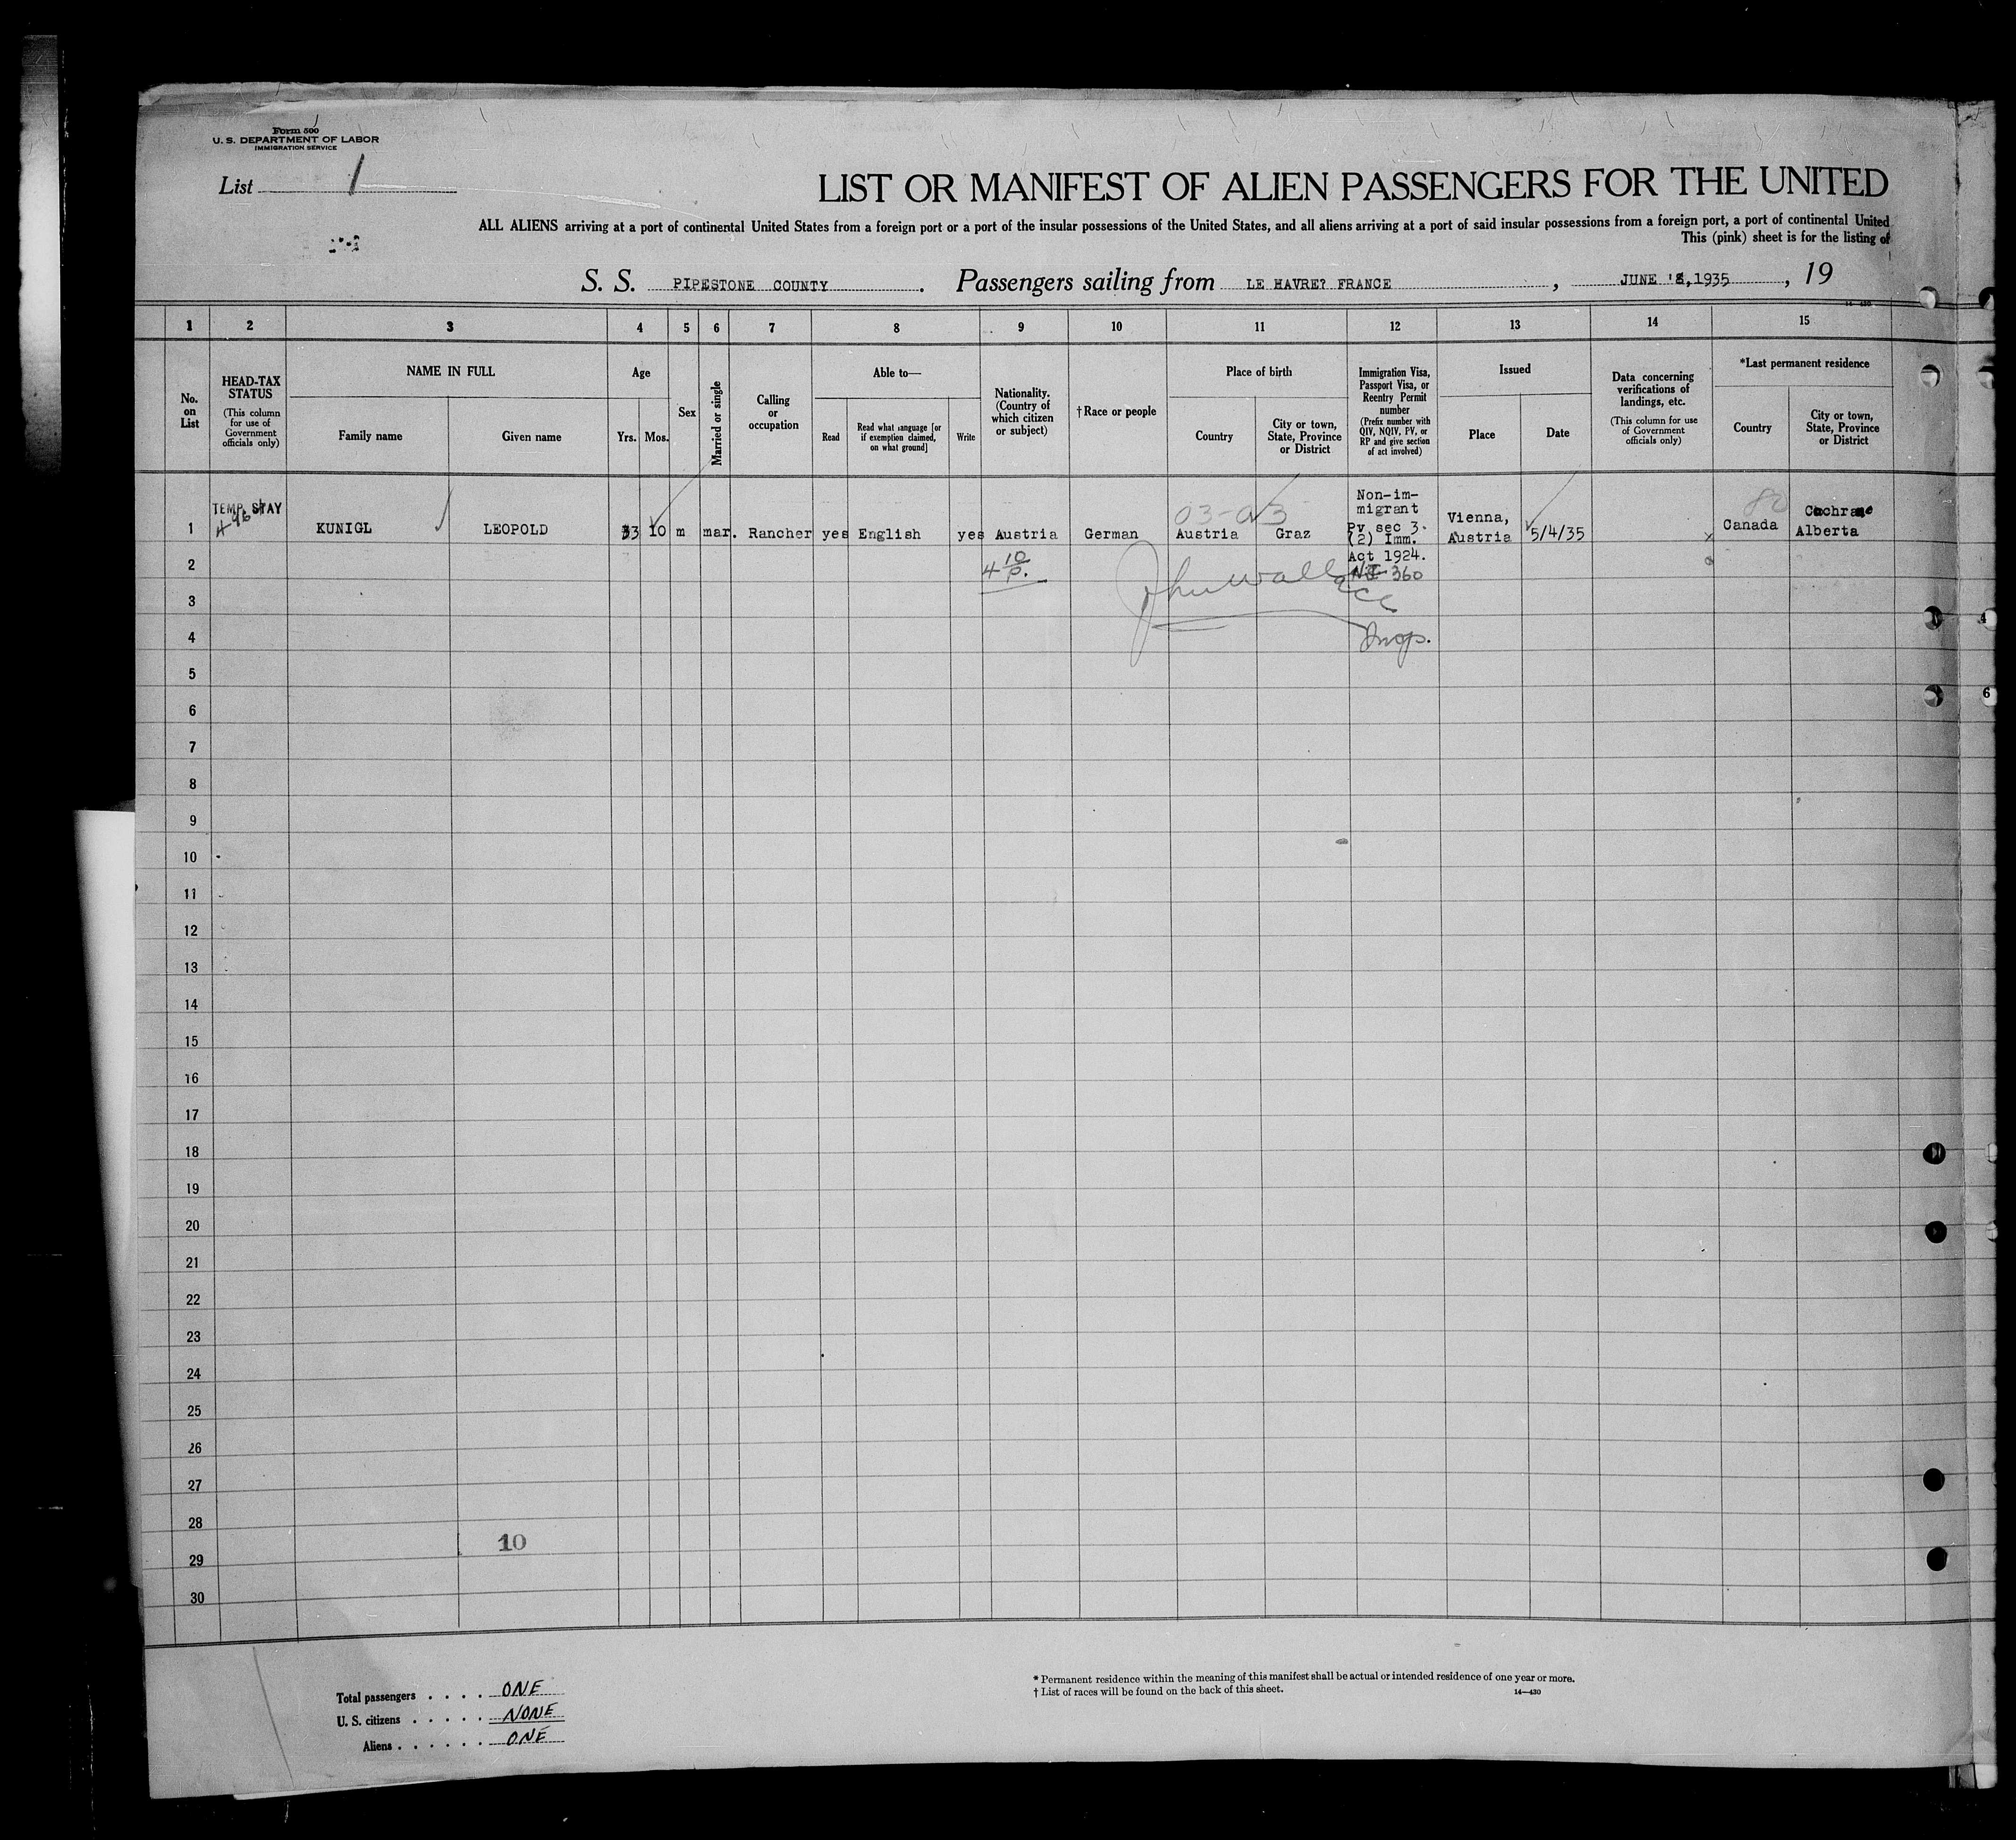 Form 500
U. S. DEPARTMENT OF LABOR
IMMIGRATION SERVICE
List 1
LIST OR MANIFEST OF ALIEN PASSENGERS FOR THE UNITED
ALL ALIENS arriving at a port of continental United States from a foreign port or a port of the insular possessions of the United States, and all aliens arriving at a port of said insular possessions from a foreign port, a port of continental United
This (pink) sheet is for the listing of
S. S. PIPESTONE COUNTY . Passengers sailing from LE HAVRE? FRANCE , JUNE 1935 , 19
1 2 3 4 5 6 7 8 9 10 11 12 13 14 15
No. on List
HEAD-TAX STATUS
(This column for use of Government officials only)
NAME IN FULL
Family name
Given name
Age
Yrs.
Mos.
Sex
Married or single
Calling or occupation
Able to—
Read
Read what language [or if exemption claimed, on what ground]
Write
Nationality. (Country of which citizen or subject)
†Race or people
Place of birth
Country
City or town, State, Province or District
Immigration Visa, Passport Visa, or Reentry Permit number
(Prefix number with QIV, NQIV, PV, or RP and give section of act involved)
Issued
Place
Date
Data concerning verifications of landings, etc.
(This column for use of Government officials only)
*Last permanent residence
Country
City or town, State, Province or District
1
TEMP. STAY
KUNIGL
LEOPOLD
33
10
m
mar.
Rancher
yes
English
yes
Austria
German
Austria
Graz
Non-im-
migrant
Pv sec 3.
(2) Imm.
Act 1924.
360
Vienna,
Austria
5/4/35
80
Canada
Cochrane
Alberta
4 10/P.
John Wallace
Insp.
2
3
4
5
6
7
8
9
10
11
12
13
14
15
16
17
18
19
20
21
22
23
24
25
26
27
28
10
29
30
Total passengers . . . . ONE
U. S. citizens . . . . . NONE
Aliens . . . . . . ONE
* Permanent residence within the meaning of this manifest shall be actual or intended residence of one year or more.
† List of races will be found on the back of this sheet.
14—430